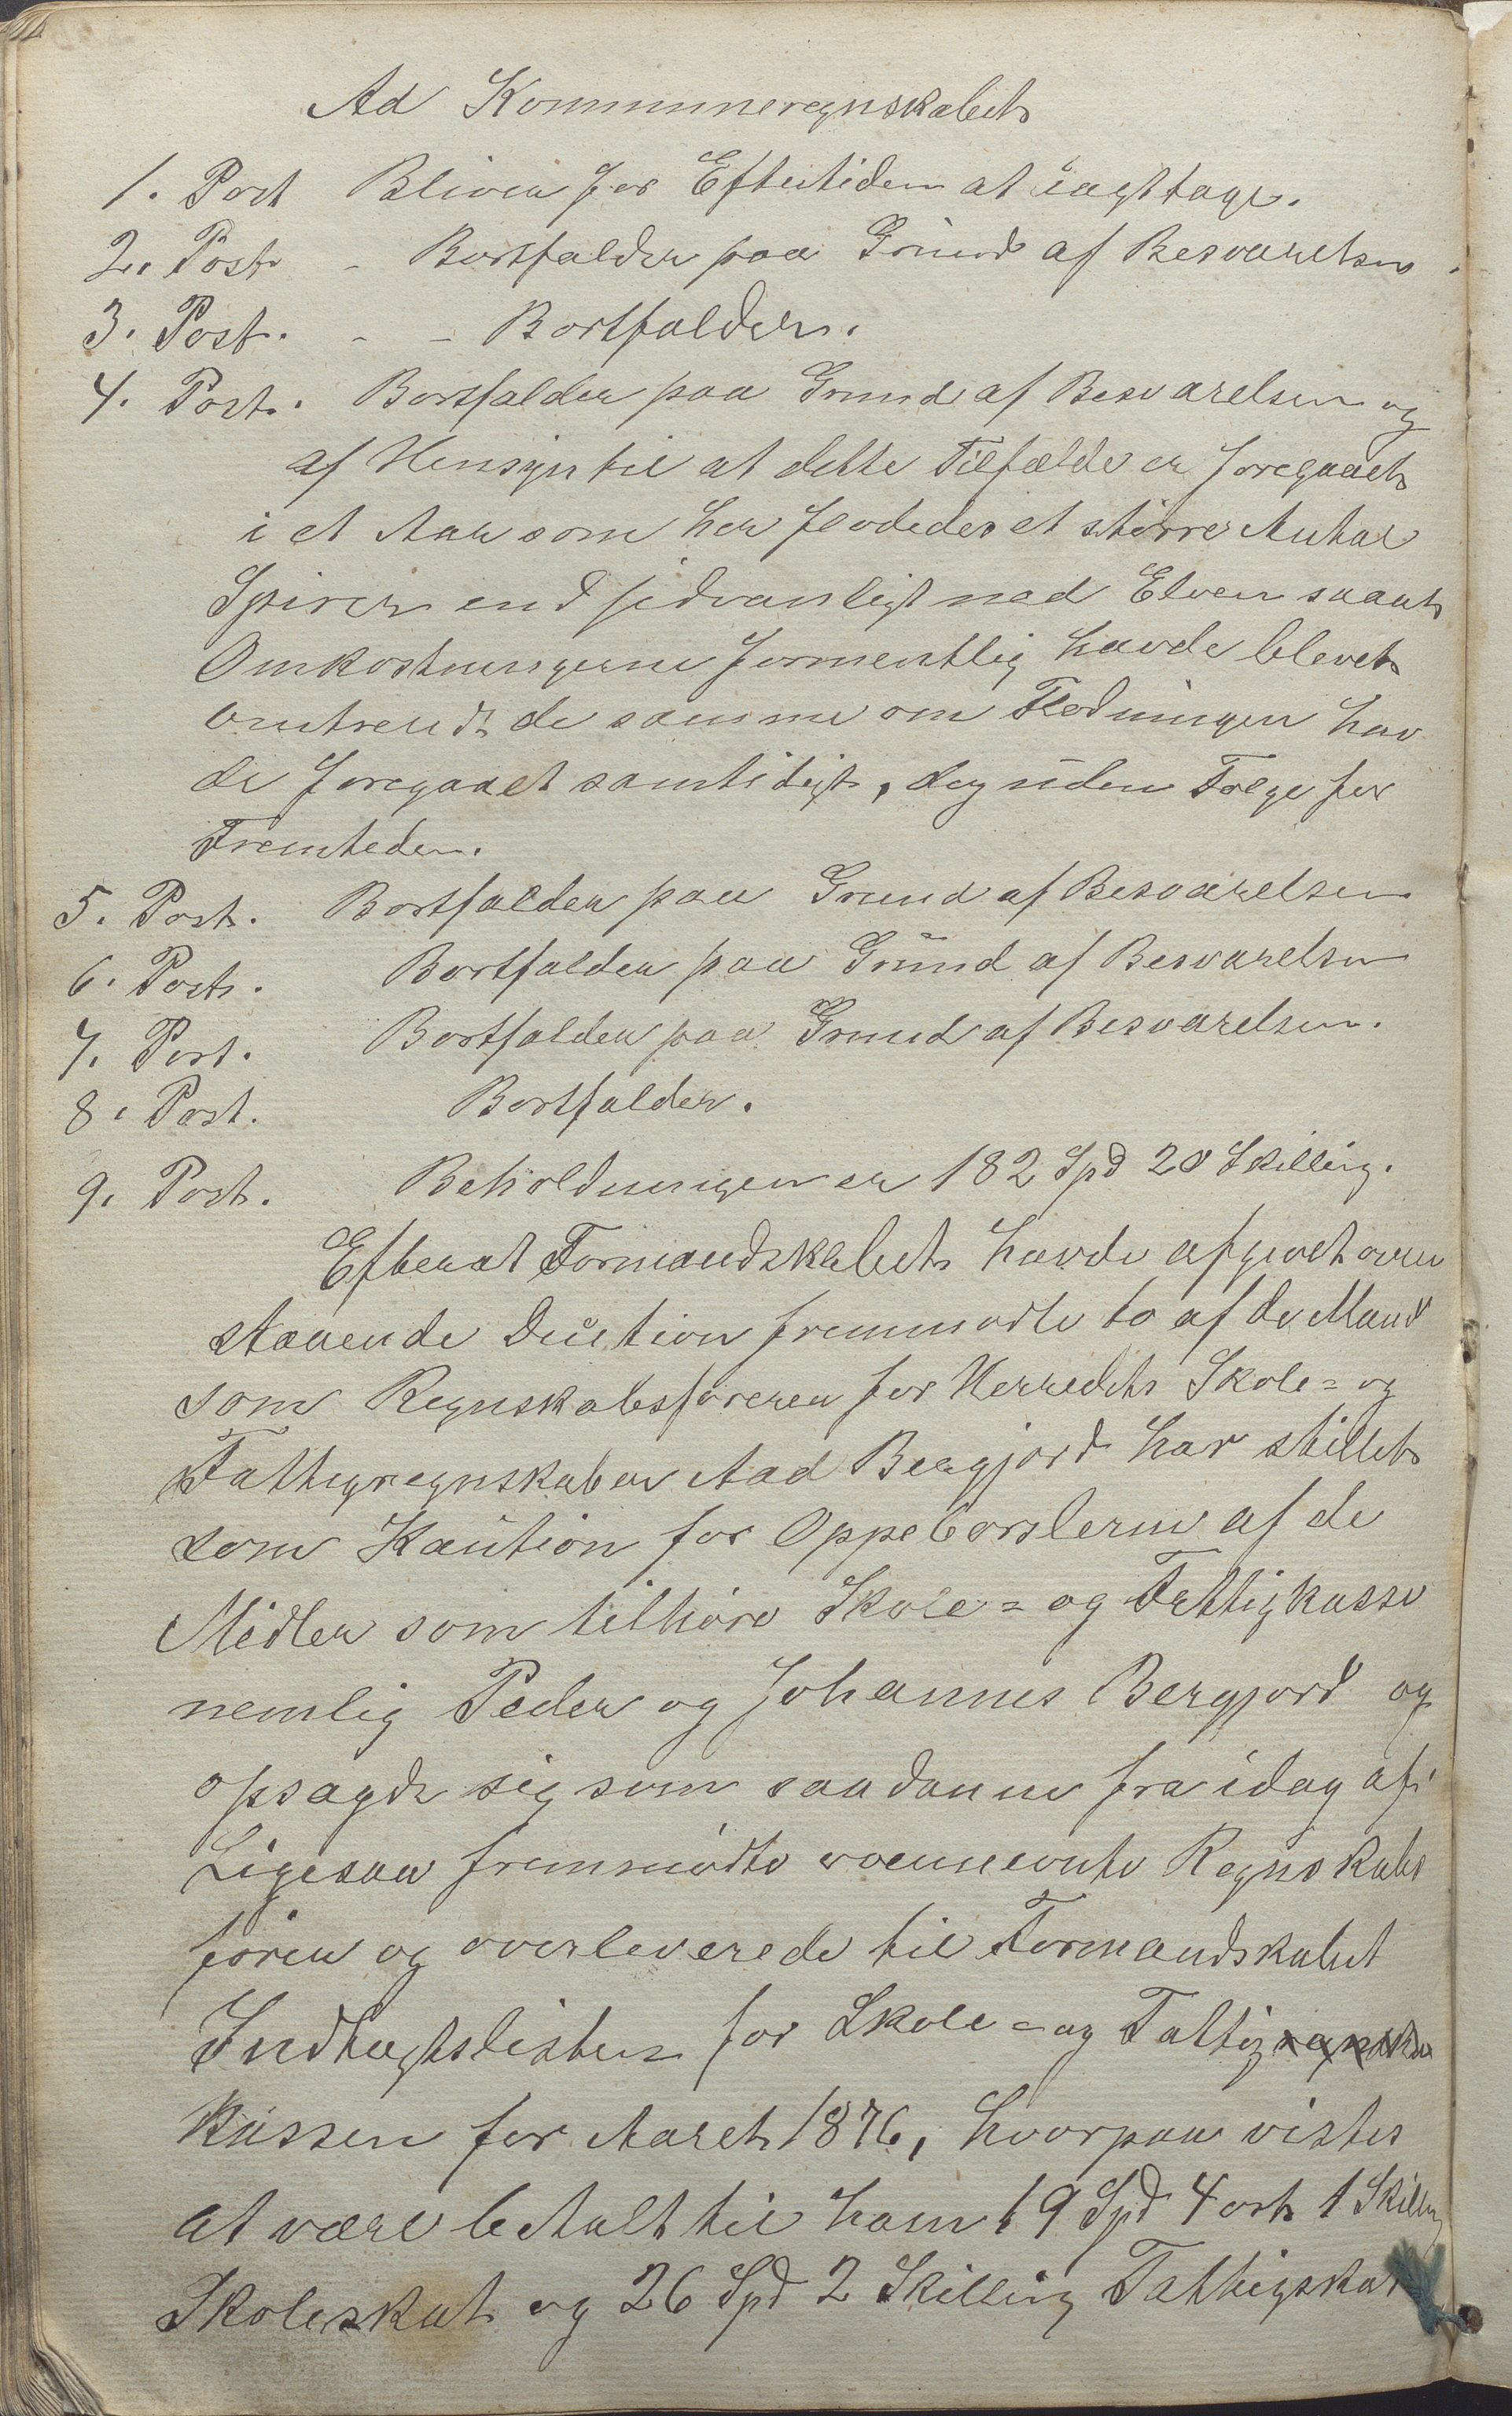 Ad Kommuneregnskabet
1. Post Bliver for Eftertiden at iagttage.
2. Post - Bortfalder paa Grund af Besvarelsen.
3. Post. - - Bortfalder.
4. Post. Bortfalder paa Grund af Besvarelsen og
af Hensyn til at dette Tilfælde er foregaaet
i et Aar som her flødedes et større Antal
Spirer end sedvanligt ned Elven saaat
Omkostningerne formentlig havde blevet
omtrendt de samme om Flødningen hav
de foregaaet samtidigt, dog uden Følge for
Fremteden.
5. Post. Bortfalder paa Grund af Besvarelsen
6. Post. Bortfalder paa Grund af Besvarelsen
7. Post. Bortfalder paa Grund af Besvarelsen.
8. Post. Bortfalder.
9. Post. Beholdningen er 182 Spd 20 Skilling.
Efterat Formandskabet havde afgivet oven
staaende fremmødte to af de Mænd
som Regnskabsføreren for Herredets Skole= og
Fattigregnskaber Aad Bergjord har stillet
som Kaution for Oppebørslerne af de
Midler som tilhøre Skole= og Fattigkasse
nemlig Peder og Johannes Bergjord og
opsagde sig som saadanne fra idag af.
Ligesaa fremmødte ovennevnte Regnskabs
fører og overleverede til Formandskabet
Indtægtslisten for Skole= og Fattigregnska
kassen for Aaret 1876, hvorpaa vistes
at være betalt til ham 19 Spd 4 ort 1 Skilling
Skoleskat og 26 Spd 2 Skilling Fattigskat